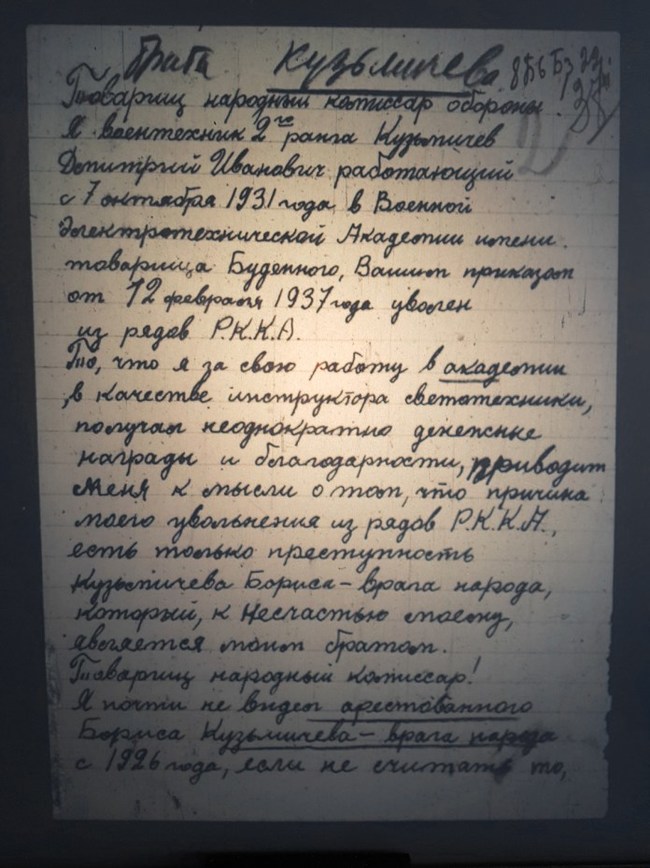 брата Кузьмичева.
Товарищ народный комиссар обороны.
Я воентехник 2го ранга Кузьмичев
Дмитрий Иванович работающий
с 7 октября 1931 года в Военной
Электротехнической Академии имени
товарища Буденного, Вашим приказом
от 12 февраля 1937 года уволен
из рядов Р.К.К.А.
То, что я за свою работу в академии
, в качестве инструктора светотехники,
получал неоднократно денежные
награды и благодарности, приводит
меня к мысли о том, что причина
моего увольнения из рядов Р.К.К.А.,
есть только преступность
Кузьмичева Бориса – врага народа,
который, к несчастью моему,
является моим братом.
Товарищ народный комиссар!
Я почти не видел арестованного
Бориса Кузьмичева – врага народа
с 1926 года, если не считать то,